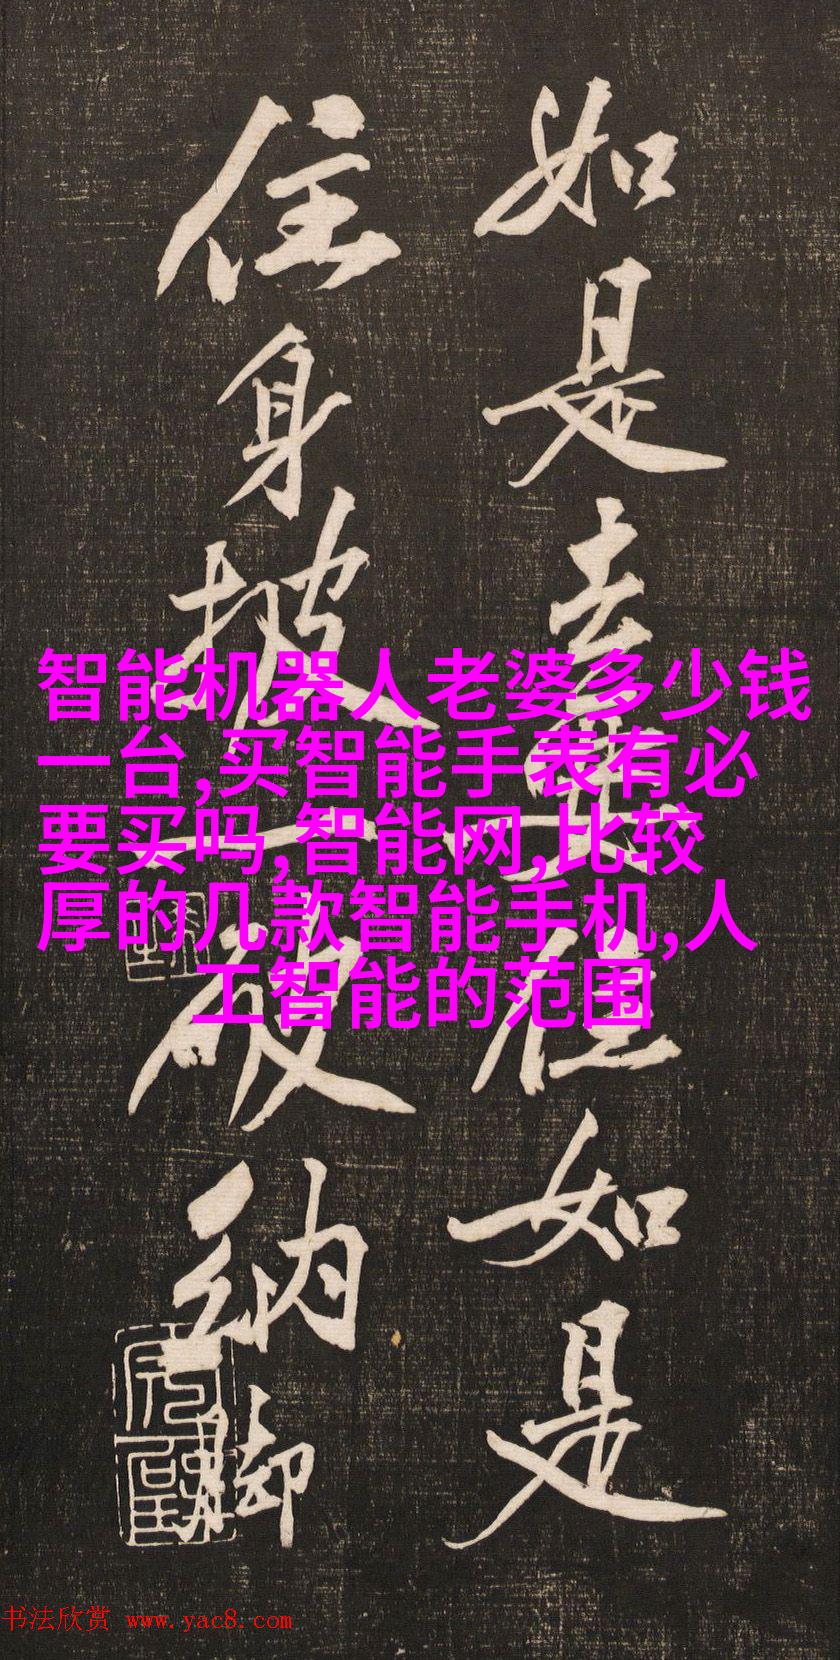 如是去如是
住身披一破納脚
智能机器人老婆多少钱
一台,买智能手表有必
要买吗,智能网,比较
厚的几款智能手机,人
工智能的范围
书法欣赏 www.yac8.com